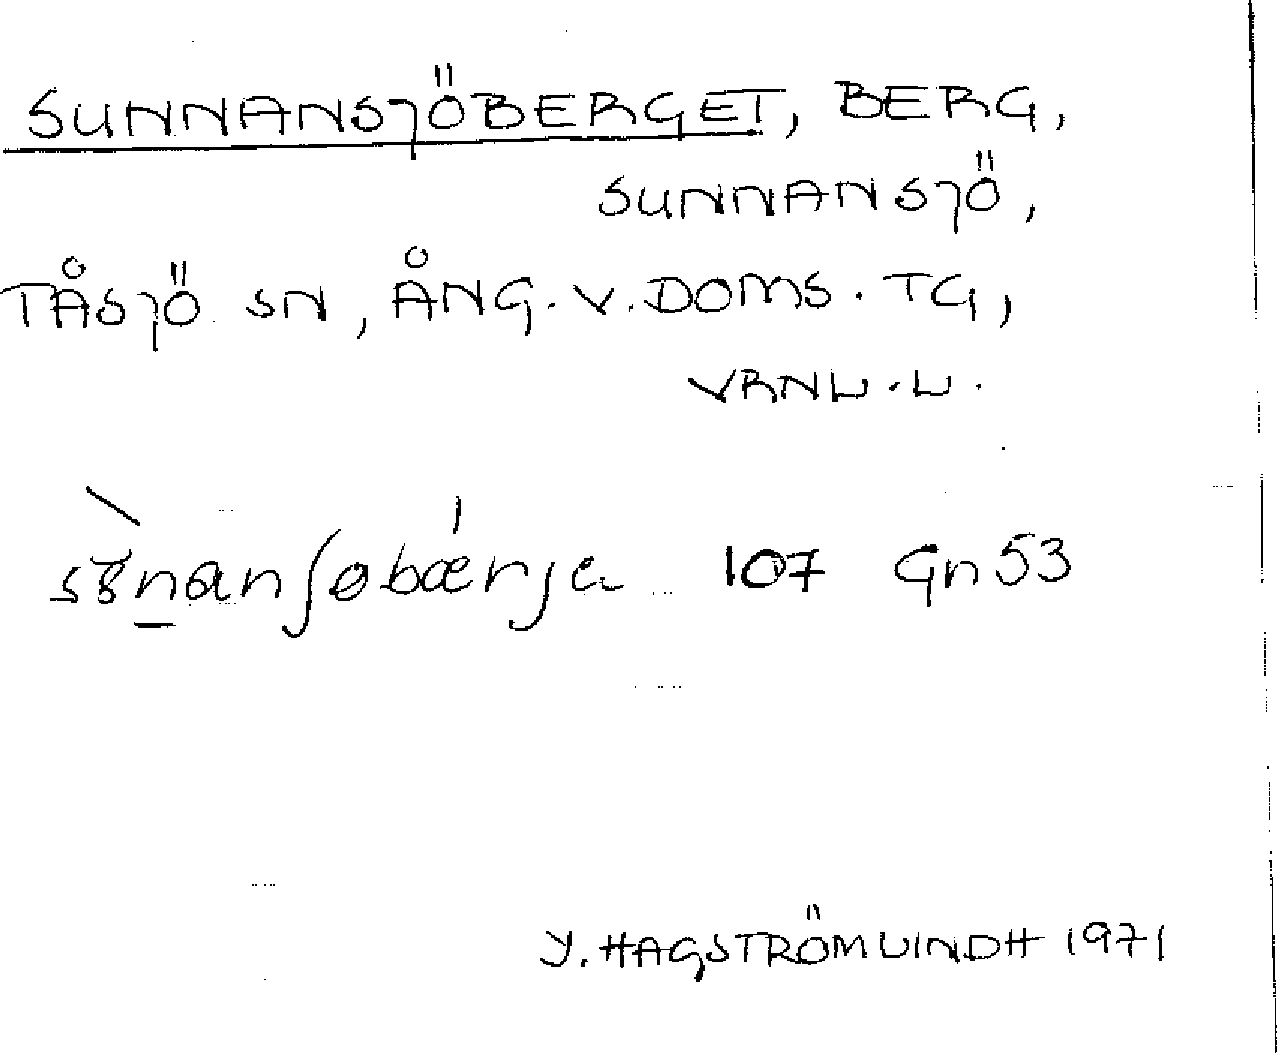 SUNNANSJÖBERGET, BERG,
SUNNANSJÖ,
TÅSJÖ SN, ÅNG. V. DOMS. TG,
VRNL. L.
107 Gn 53
Y. HAGSTRÖM LINDH 1971